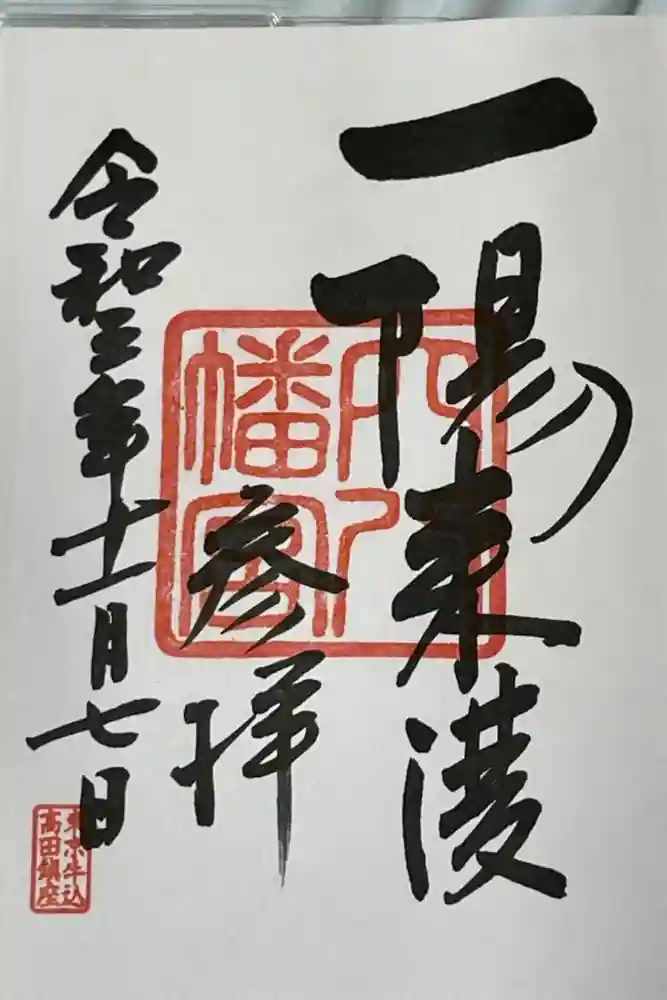 一陽来復
穴八幡宮
参拝
令和三年十一月七日
東京牛込
高田鎮座